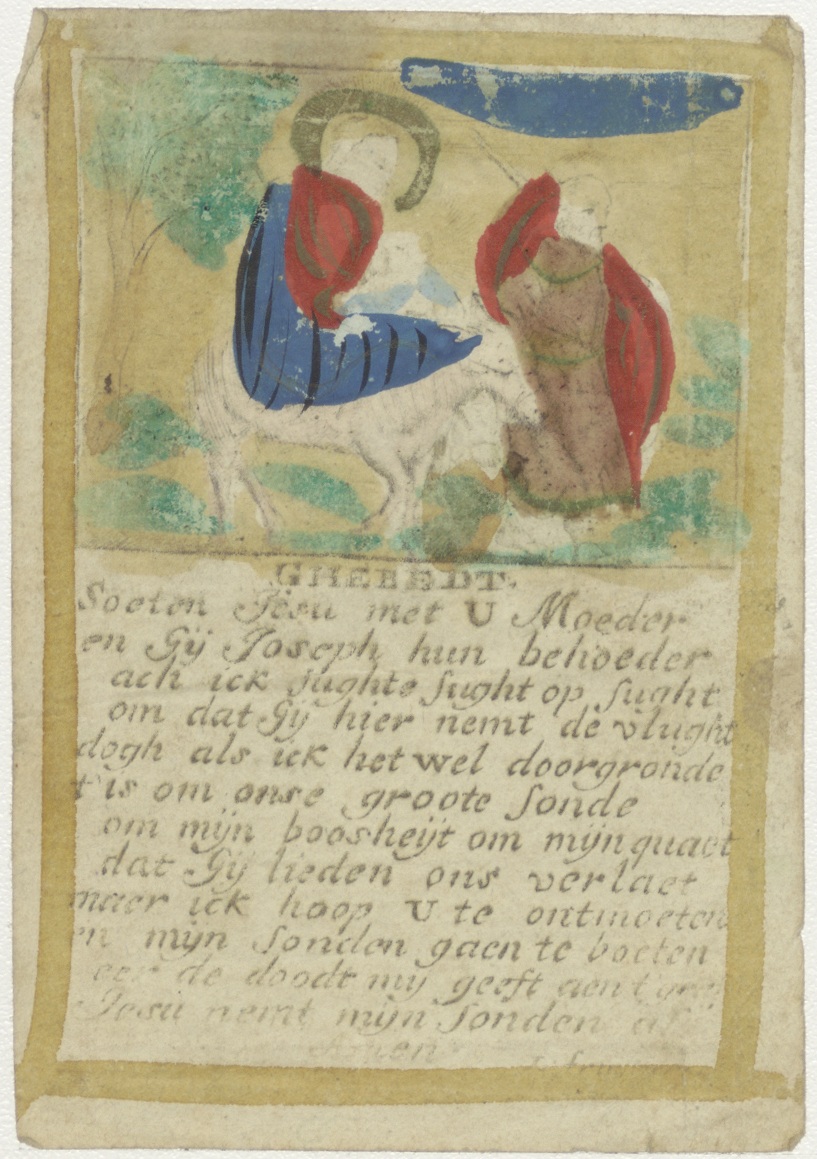 GHEBEDT.
Soeten Jesu met U Moeder
en Gij Joseph hun behoeder
ach ick sughte sught op sught
om dat Gij hier nemt de vlught
dogh als ick het wel doorgronde
t'is om onse groote sonde
om mijn boosheijt om mijn quaet
dat Gij lieden ons verlaet
maer ick hoop U te ontmoeten
en mijn sonden gaen te boeten
eer de doodt mij geeft aen t'graf
Jesu nemt mijn sonden af
Amen